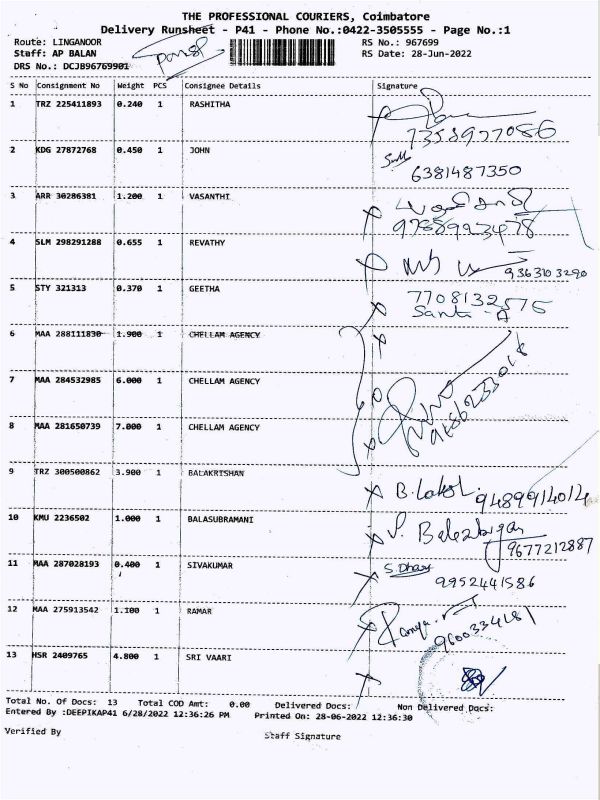 THE PROFESSIONAL COURIERS, Coimbatore
Delivery Runsheet - P41 - Phone No.:0422-3505555 - Page No.:1
Route: LINGANOOR RS No.: 967699
Staff: AP BALAN RS Date: 28-Jun-2022
DRS No.: DCJB96769901
S No Consignment No Weight PCS Consignee Details Signature
1 TRZ 225411893 0.240 1 RASHITHA
2 KDG 27872768 0.450 1 JOHN
6381487350
3 ARR 30286381 1.200 1 VASANTHI
4 SLM 298291288 0.655 1 REVATHY
9363103290
5 STY 321313 0.370 1 GEETHA
Santa - A
6 MAA 288111830 1.900 1 CHELLAM AGENCY
7 MAA 284532985 6.000 1 CHELLAM AGENCY
8 MAA 281650739 7.000 1 CHELLAM AGENCY
9 TRZ 300500862 3.900 1 BALAKRISHAN
9489914014
10 KMU 2236502 1.000 1 BALASUBRAMANI
9677212887
11 MAA 287028193 0.400 1 SIVAKUMAR
9952441586
12 MAA 275913542 1.100 1 RAMAR
9600334181
13 HSR 2409765 4.800 1 SRI VAARI
Total No. Of Docs: 13 Total COD Amt: 0.00 Delivered Docs: Non Delivered Docs:
Entered By :DEEPIKAP41 6/28/2022 12:36:26 PM Printed On: 28-06-2022 12:36:30
Verified By Staff Signature